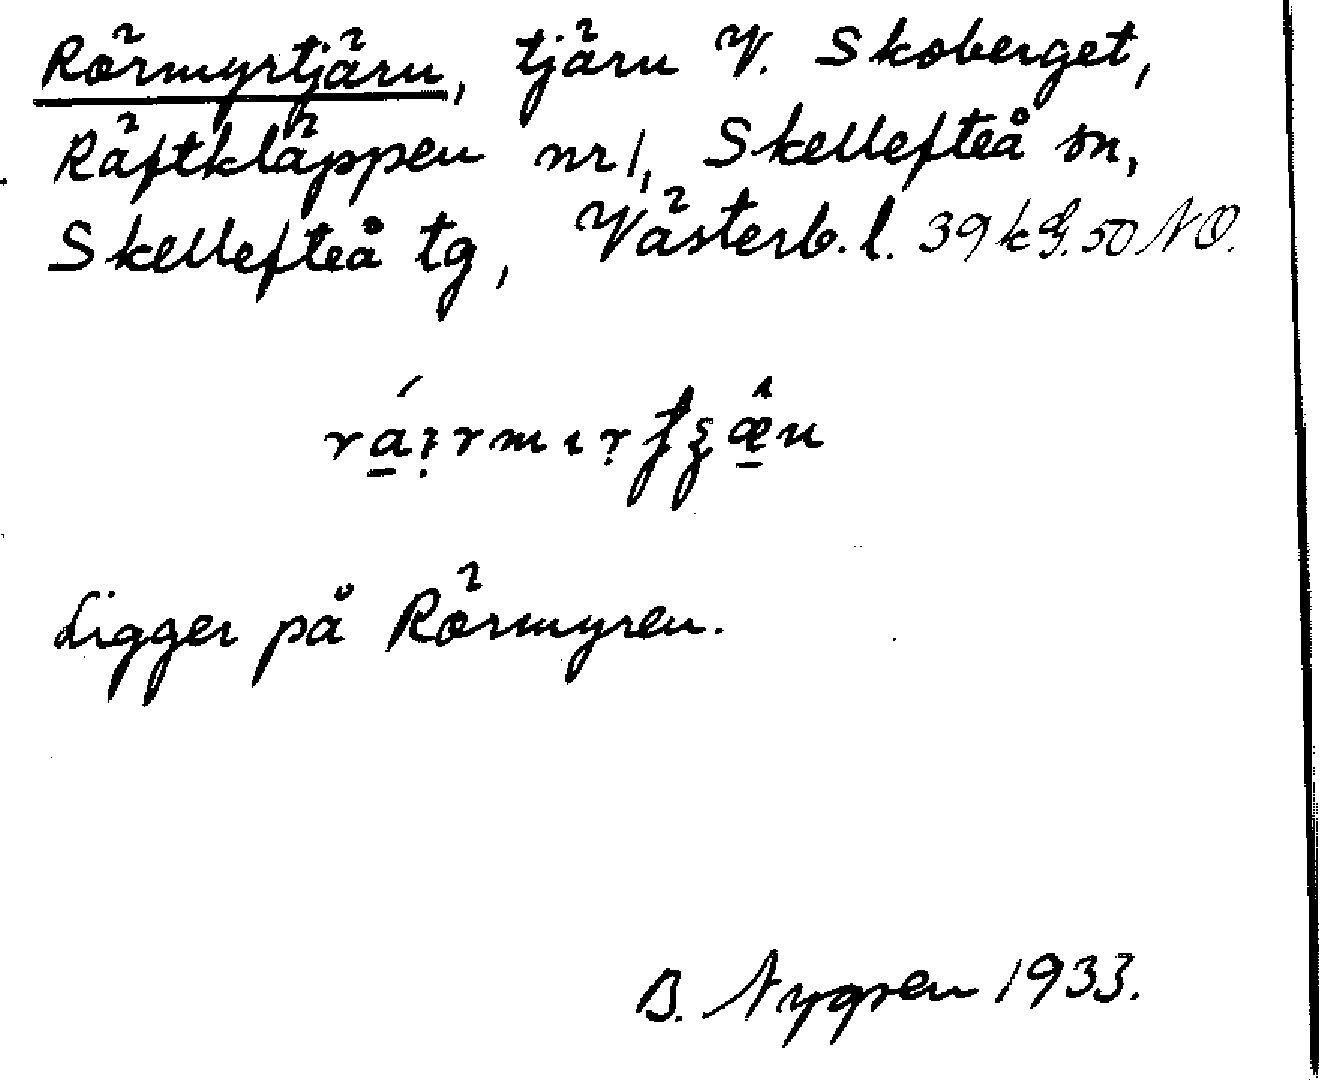 Rörmyrtjärn, tjärn V. Skoberget,
Räftkläppen nr 1, Skellefteå sn,
Skellefteå tg, Västerb. l. 39 k 50 NO.
Ligger på Rörmyren.
B. Nygren 1933.